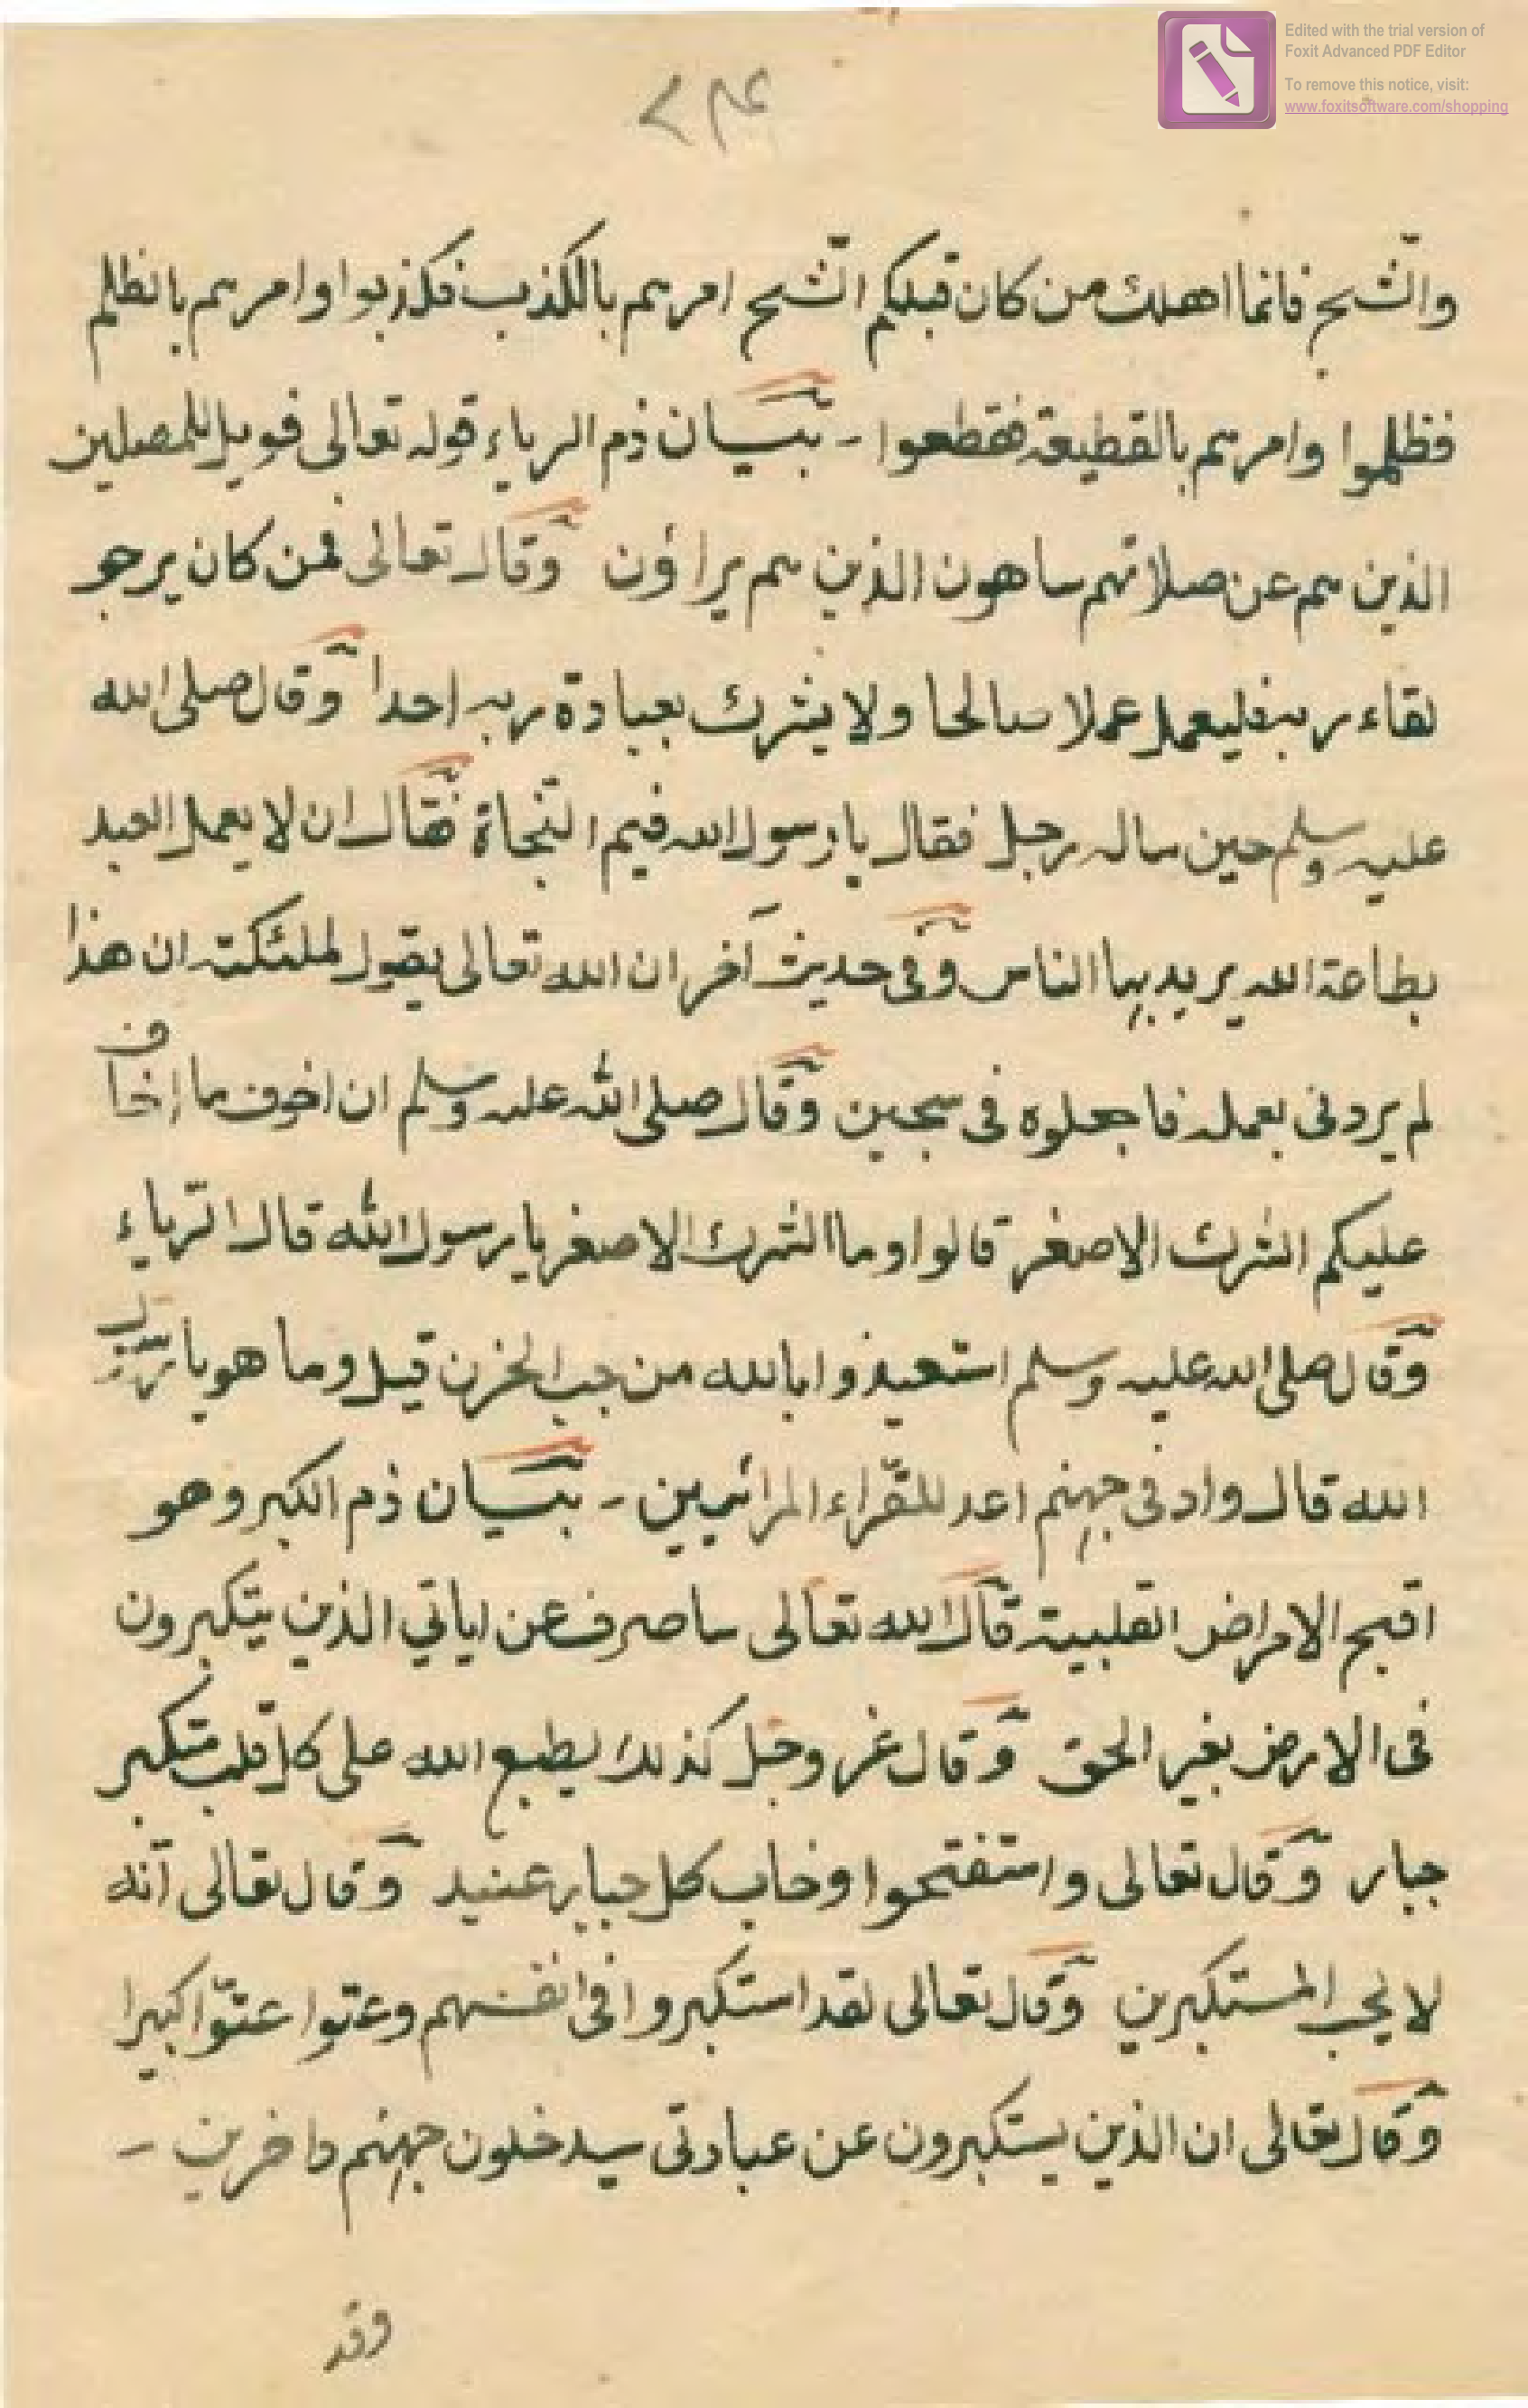 Edited with the trial version of
Foxit Advanced PDF Editor
To remove this notice, visit:
www.foxitsoftware.com/shopping
والشّح فانما اهلك من كان قبلكم الشّح امرهم بالكذب فكذبوا وامرهم بالظلم
فظلموا وامرهم بالقطيعة فقطعوا - بيان ذم الرياء قوله تعالى فويل للمصلين
الذين هم عن صلاتهم ساهون الذين هم يراؤن وقال تعالى فمن كان يرجو
لقاء ربه فليعمل عملا صالحا ولا يشرك بعبادة ربه احدا وقال صلى الله
عليه وسلم حين ساله رجل فقال يا رسول الله فيم النجاة فقال ان لا يعمل العبد
بطاعة الله يريد بها الناس وفى حديث آخر ان الله تعالى يقول لملئكته ان هذا
لم يردنى بعمله فاجعلوه فى سجين وقال صلى الله عليه وسلم ان اخوف ما اخاف
عليكم الشرك الاصغر قالوا وما الشرك الاصغر يا رسول الله قال الرّياء
وقال صلى الله عليه وسلم استعيذوا بالله من جب الحزن قيل وما هو يا رسول
الله قال واد فى جهنم اعد للقّراء المرائيين - بيان ذم الكبر وهو
اقبح الامراض القلبية قال الله تعالى ساصرف عن اياتي الذين يتكبرون
فى الارض بغير الحق وقال عز وجل كذلك يطبع الله على كل قلب متكبر
جبار وقال تعالى واستفتحوا وخاب كل جبار عنيد وقال تعالى انه
لا يحب المستكبرين وقال تعالى لقد استكبروا فى انفسهم وعتوا عتوّا كبيرا
وقال تعالى ان الذين يستكبرون عن عبادتى سيدخلون جهنم داخرين -
وقد